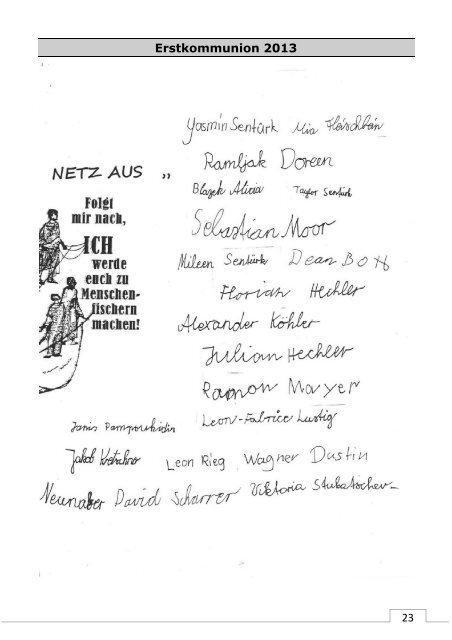 Erstkommunion 2013
Yasmin Sentürk Mia Fleischbein
Ramljak Doreen
NETZ AUS „
Blazek Alicia Taylor Sentürk
Folgt
mir nach,
ICH
werde
euch zu
Menschen-
fischern
machen!
Sebastian Moor
Mileen Sentürk Dean Bott
Florian Hechler
Alexander Köhler
Julian Hechler
Ramon Mayer
Leon-Fabrice Lustig
Janis
Jakob Leon Rieg Wagner Dustin
Neunaber David Scharrer Viktoria
23